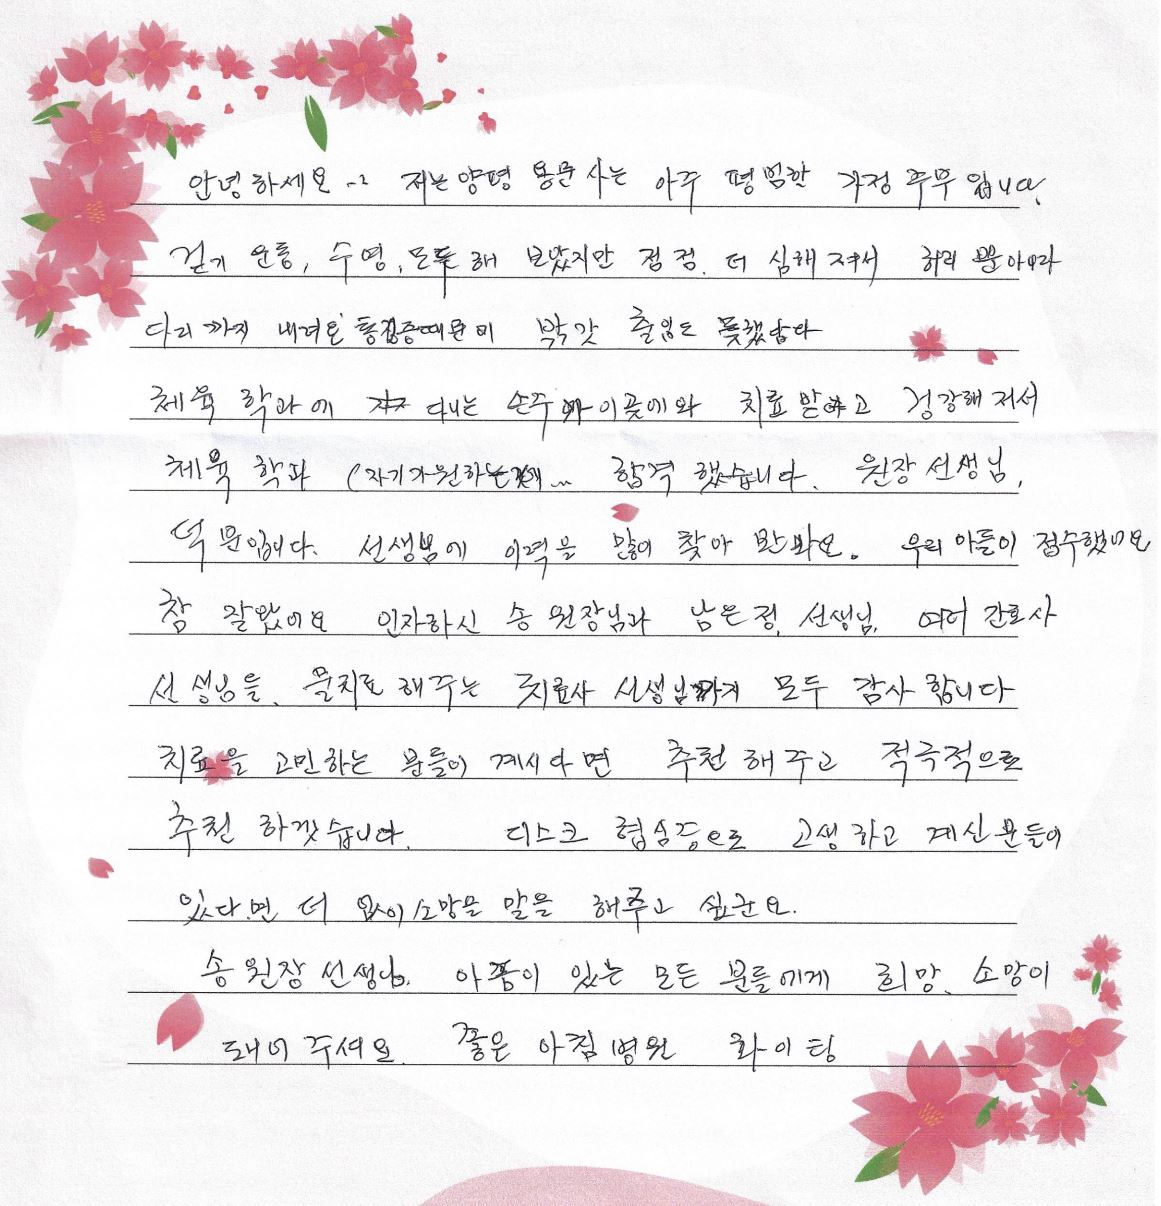 안녕하세요~~ 저는 양평 용문 사는 아주 평범한 가정 주부 입니다.
걷기 운동, 수영, 모두 해 보았지만 점점. 더 심해져서 허리 뿐 아니라
다리 까지 내려온 통집증때문에 박갓 출입도 못했답다
체육 학과에 다니는 손주가 이곳에 와 치료 받고 겅강해 저서
체육 학과 (자기가 원하는 합격 했습니다. 원장 선생님,
덕분입니다. 선생님에 이력을 많이 찾아 봐요. 우리 아들이 접수했네요
참 잘왔어요 인자하신 송 원장님과 남은정. 선생님, 여러 간호사
선생님들, 물치도 해주는 치료사 선생님까지 모두 감사 합니다
치료을 고민하는 분들이 계시다면 추천 해 주고 적극적으로
추천 하겠습니다. 디스크 협심증으로 고생하고 계신 분들이
있다.면 더 없이 소망을 말을 해주고 싶군요.
송 원장 선생님. 아픔이 있는 모든 분들에게 희망, 소망이
돼어 주세요. 좋은 아침 병원 화이팅